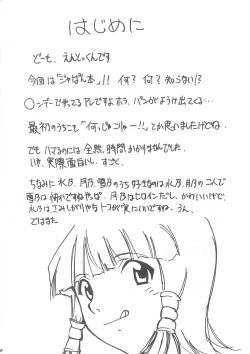 はじめに
どーも、えんどっくんです
今回は「じゃぱん本」!! 何？何？知らない!?
○ンデーでやってるアレですよホラ、パンがようけ出てくる…
最初のうちこそ「何っじゃこりゃー!!」とか思いましたけどね
でもハマるのには全然、時間かかりませんでした。
いや、実際面白い、すごく。
ちなみに水乃、月乃、雪乃のうち好きなのは水乃、月乃の二人で
雪乃は怖いですねやっぱ。月乃はヒロインだし、かわいいけど、
水乃はさみしがりやなトコが実にいいですね。うん。
ではまた